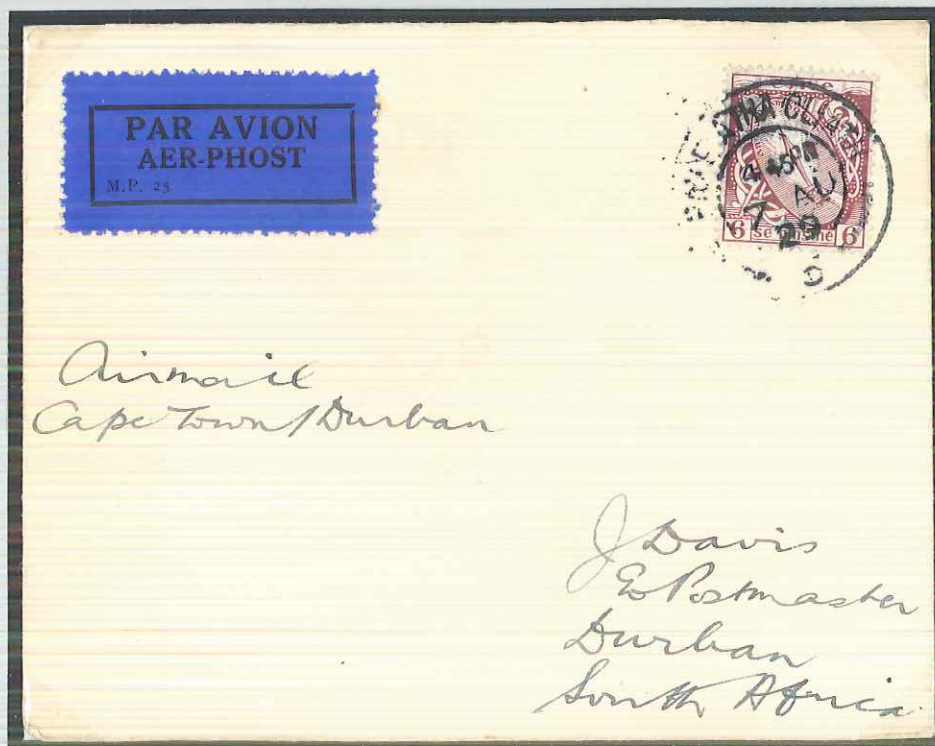 PAR AVION
AER-PHOST
M.P. 25
ATHA CLIATH
4 45PM
7 AU
29
6 6
Airmail
Cape Town/Durban
J Davis
Postmaster
Durban
South Africa